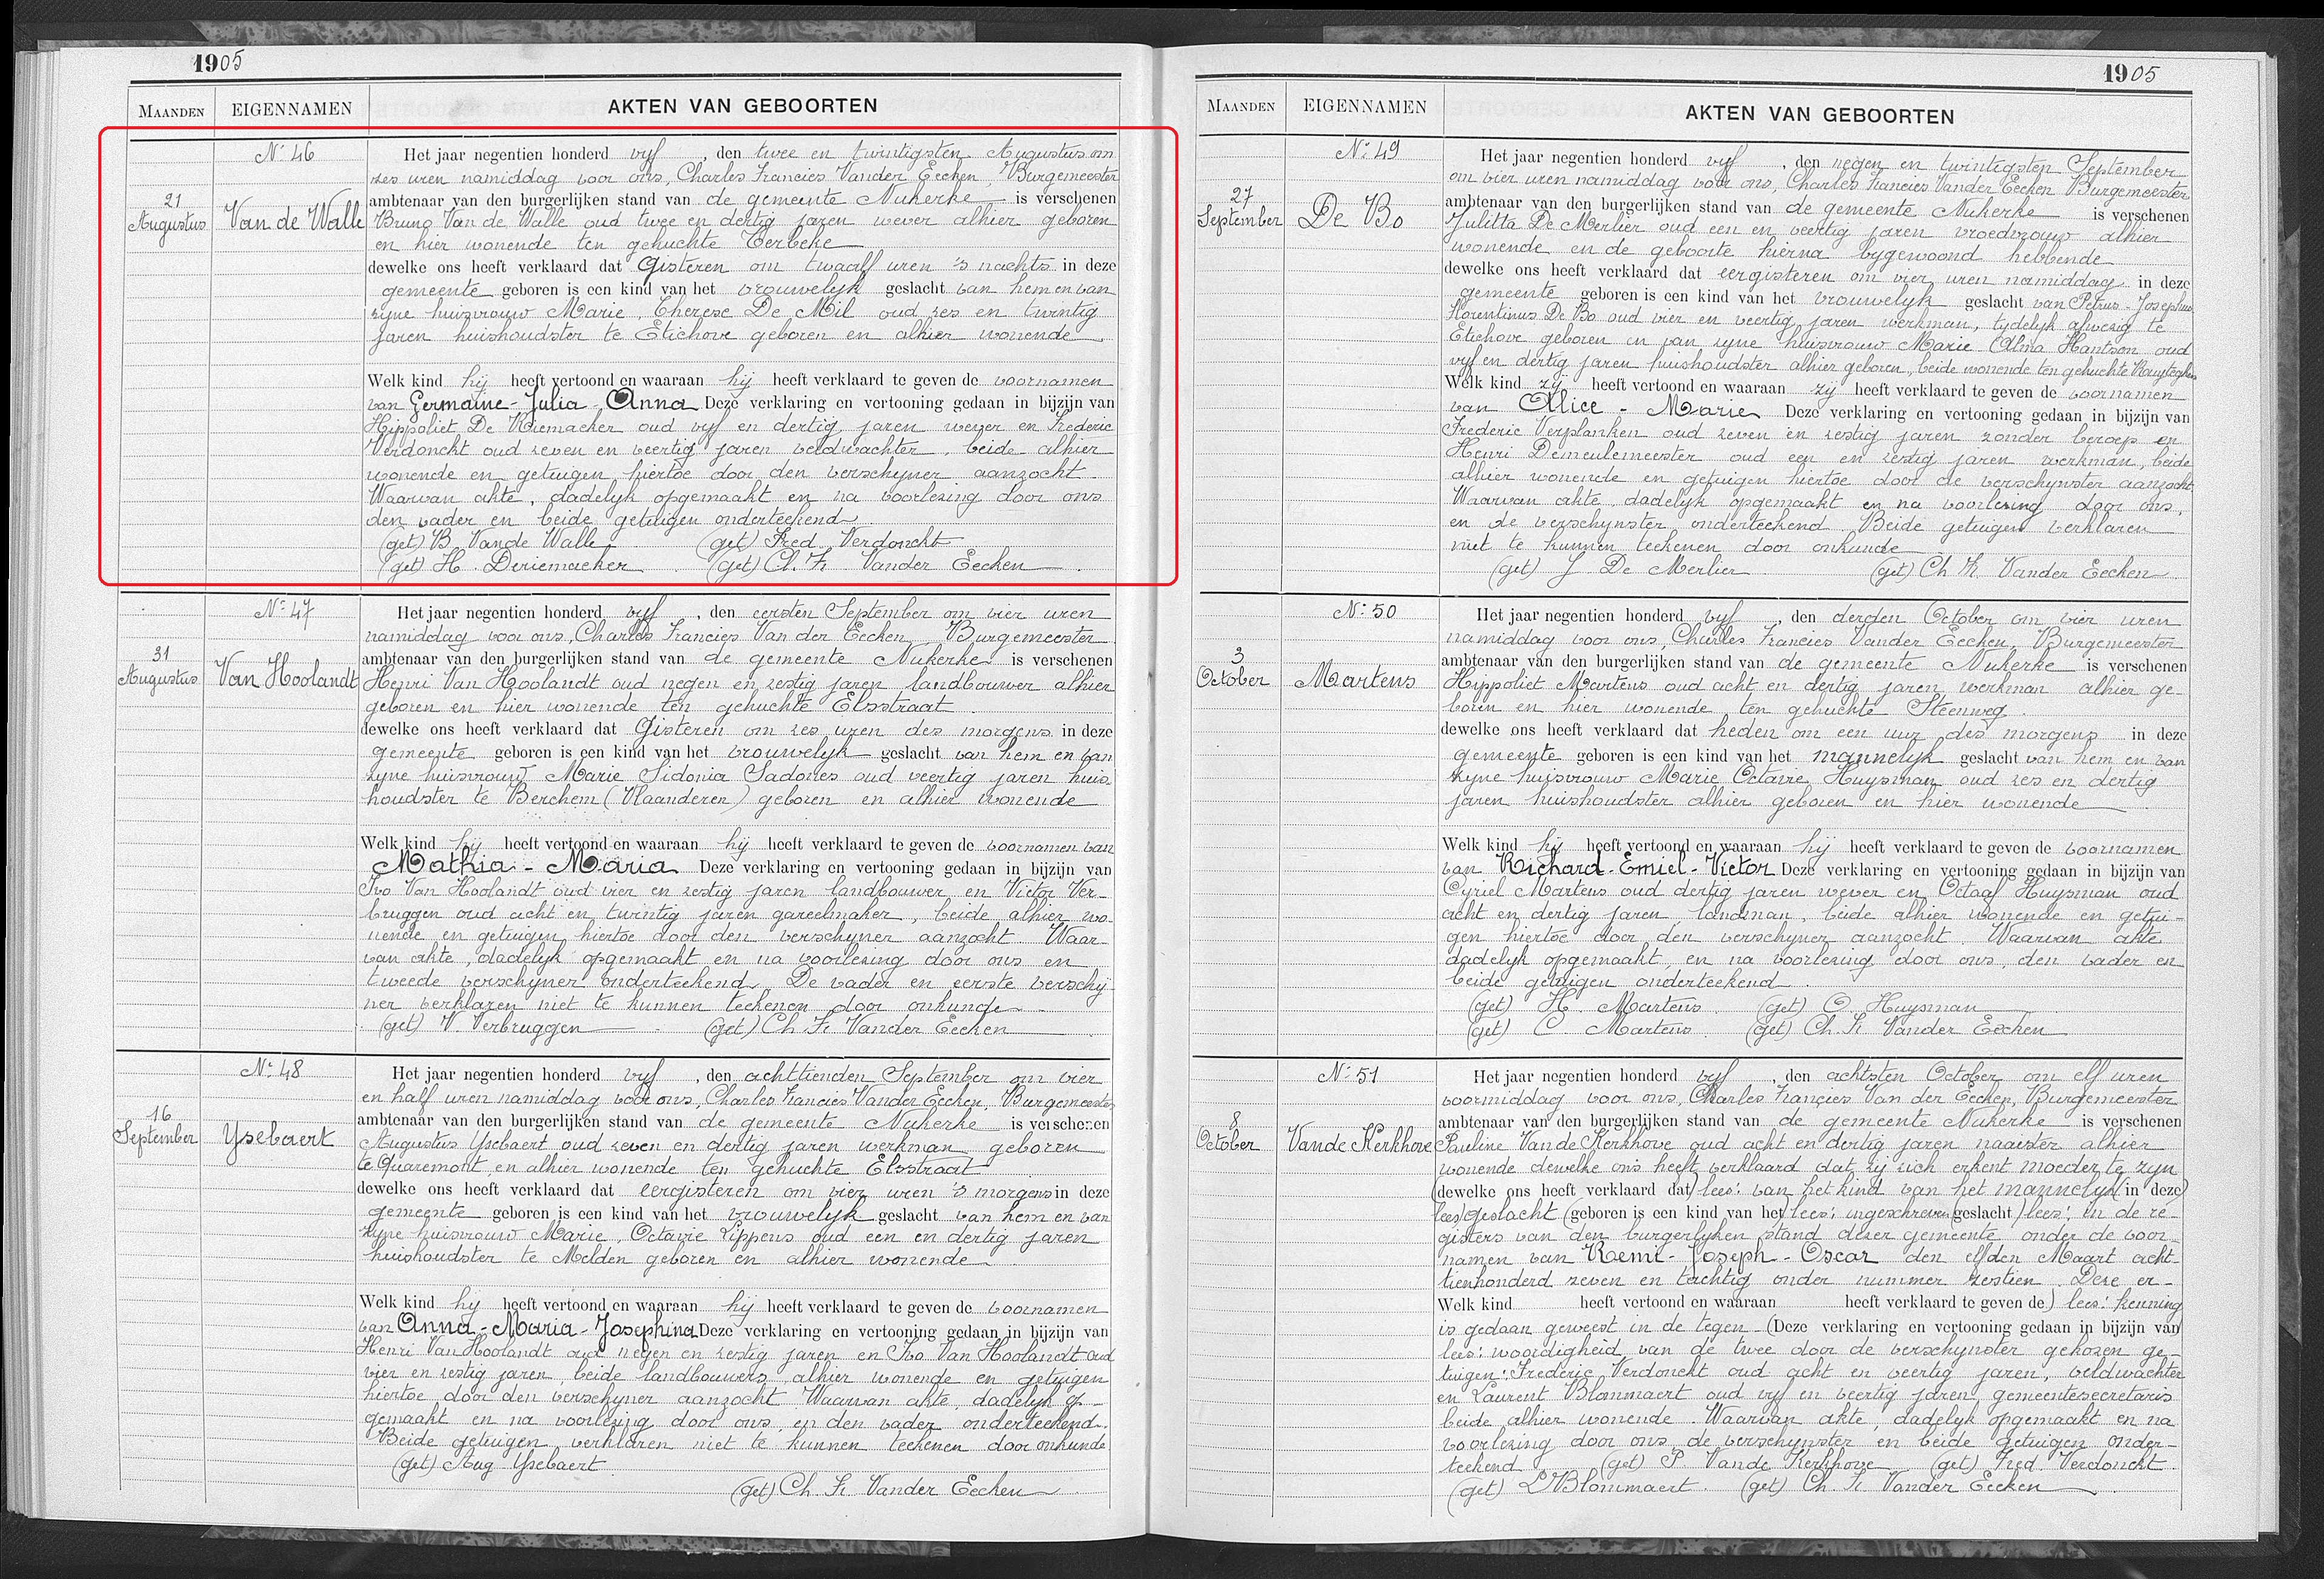 1905
MAANDEN EIGENNAMEN AKTEN VAN GEBOORTEN
Nr 46
21
Augustus
Van de Walle
Het jaar negentien honderd vyf, den twee en twintigsten Augustus om
zes uren namiddag voor ons, Charles Francies Vander Eecken, Burgemeester
ambtenaar van den burgerlijken stand van de gemeente Nukerke is verschenen
Bruno Van de Walle oud twee en dertig jaren wever alhier geboren
en hier wonende ten gehuchte Terbeke
dewelke ons heeft verklaard dat Gisteren om twaalf uren 's nachts in deze
gemeente geboren is een kind van het vrouwelyk geslacht van hem en van
zyne huisvrouw Marie Therese De Mil oud zes en twintig
jaren huishoudster te Etichove geboren en alhier wonende
Welk kind hij heeft vertoond en waaraan hij heeft verklaard te geven de voornamen
van Germaine-Julia-Anna Deze verklaring en vertooning gedaan in bijzijn van
Hippoliet De Riemacker oud vyf en dertig jaren wever en Frederic
Verdonckt oud zeven en veertig jaren veldwachter, beide alhier
wonende en getuigen hiertoe door den verschyner aanzocht.
Waarvan akte, dadelyk opgemaakt en na voorlezing door ons
den vader en beide getuigen onderteekend
(get) B. Vande Walle (get) Fred Verdonckt
(get) H. Deriemacker (get) Ch. Fr. Vander Eecken
Nr 47
31
Augustus
Van Hoolandt
Het jaar negentien honderd vyf, den eersten September om vier uren
namiddag voor ons, Charles Francies Van der Eecken, Burgemeester
ambtenaar van den burgerlijken stand van de gemeente Nukerke is verschenen
Henri Van Hoolandt oud negen en zestig jaren landbouwer alhier
geboren en hier wonende ten gehuchte Elsstraat
dewelke ons heeft verklaard dat Gisteren om zes uren des morgens in deze
gemeente geboren is een kind van het vrouwelyk geslacht van hem en van
zyne huisvrouw Marie Sidonia Sadones oud veertig jaren huis-
houdster te Berchem (Vlaanderen) geboren en alhier wonende
Welk kind hij heeft vertoond en waaraan hij heeft verklaard te geven de voornamen van
Mathia-Maria Deze verklaring en vertooning gedaan in bijzijn van
Ivo Van Hoolandt oud vier en zestig jaren landbouwer en Victor Ver-
bruggen oud acht en twintig jaren gareelmaker, beide alhier wo-
nende en getuigen hiertoe door den verschyner aanzocht. Waar-
van akte, dadelyk opgemaakt en na voorlezing door ons en
tweede verschyner onderteekend. De vader en eerste verschy-
ner verklaren niet te kunnen teekenen door onkunde
(get) V. Verbruggen (get) Ch Fr Vander Eecken
Nr 48
16
September
Ysebaert
Het jaar negentien honderd vyf, den achttienden September om vier
en half uren namiddag voor ons, Charles Francies Vander Eecken, Burgemeester
ambtenaar van den burgerlijken stand van de gemeente Nukerke is verschenen
Augustus Ysebaert oud zeven en dertig jaren werkman geboren
te Quaremont en alhier wonende ten gehuchte Elsstraat
dewelke ons heeft verklaard dat eergisteren om vier uren 's morgens in deze
gemeente geboren is een kind van het vrouwelyk geslacht van hem en van
zyne huisvrouw Marie Octavie Lippens oud een en dertig jaren
huishoudster te Melden geboren en alhier wonende
Welk kind hy heeft vertoond en waaraan hij heeft verklaard te geven de voornamen
van Anna-Maria-Josephina Deze verklaring en vertooning gedaan in bijzijn van
Henri Van Hoolandt oud negen en zestig jaren en Ivo Van Hoolandt oud
vier en zestig jaren, beide landbouwers, alhier wonende en getuigen
hiertoe door den verschyner aanzocht. Waarvan akte, dadelyk op-
gemaakt en na voorlezing door ons en den vader onderteekend.
Beide getuigen verklaren niet te kunnen teekenen door onkunde
(get) Aug Ysebaert
(get) Ch. Fr. Vander Eecken
1905
MAANDEN EIGENNAMEN AKTEN VAN GEBOORTEN
Nr 49
27
September
De Bo
Het jaar negentien honderd vyf, den negen en twintigsten September
om vier uren namiddag voor ons, Charles Francies Vander Eecken Burgemeester
ambtenaar van den burgerlijken stand van de gemeente Nukerke is verschenen
Julitta De Merlier oud een en veertig jaren vroedvrouw alhier
wonende en de geboorte hierna bygewoond hebbende
dewelke ons heeft verklaard dat eergisteren om vier uren namiddag in deze
gemeente geboren is een kind van het vrouwelyk geslacht van Petrus-Josephus
Florentinus De Bo oud vier en veertig jaren werkman, tydelyk afwezig te
Etichove geboren en van zyne huisvrouw Marie Alma Hantson oud
vyf en dertig jaren huishoudster alhier geboren, beide wonende ten gehuchte
Welk kind zij heeft vertoond en waaraan zij heeft verklaard te geven de voornamen
van Alice-Marie Deze verklaring en vertooning gedaan in bijzijn van
Frederic Verplanken oud zeven en zestig jaren zonder beroep en
Henri Demeulemeester oud een en zestig jaren werkman, beide
alhier wonende en getuigen hiertoe door de verschynster aanzocht.
Waarvan akte, dadelyk opgemaakt en na voorlezing door ons,
en de verschynster onderteekend. Beide getuigen verklaren
niet te kunnen teekenen door onkunde
(get) J De Merlier (get) Ch Fr. Vander Eecken
Nr 50
3
October
Martens
Het jaar negentien honderd vyf, den derden October om vier uren
namiddag voor ons, Charles Francies Vander Eecken, Burgemeester
ambtenaar van den burgerlijken stand van de gemeente Nukerke is verschenen
Hippoliet Martens oud acht en dertig jaren werkman alhier ge-
boren en hier wonende ten gehuchte Steenweg
dewelke ons heeft verklaard dat heden om een uur des morgens in deze
gemeente geboren is een kind van het mannelyk geslacht van hem en van
zyne huisvrouw Marie Octavie Huysman oud zes en dertig
jaren huishoudster alhier geboren en hier wonende
Welk kind hij heeft vertoond en waaraan hij heeft verklaard te geven de voornamen
van Richard-Emiel-Victor Deze verklaring en vertooning gedaan in bijzijn van
Cyriel Martens oud dertig jaren wever en Octaaf Huysman oud
acht en dertig jaren landman, beide alhier wonende en getui-
gen hiertoe door den verschyner aanzocht. Waarvan akte
dadelyk opgemaakt, en na voorlezing door ons, den vader en
beide getuigen onderteekend
(get) H. Martens (get) O. Huysman
(get) C. Martens (get) Ch. Fr Vander Eecken
Nr 51
8
October
Vande Kerkhove
Het jaar negentien honderd vyf, den achtsten October om elf uren
voormiddag voor ons, Charles Françies Van der Eecken, Burgemeester
ambtenaar van den burgerlijken stand van de gemeente Nukerke is verschenen
Pauline Van de Kerkhove oud acht en dertig jaren naaister alhier
wonende dewelke ons heeft verklaard dat zij zich erkent moeder te zyn
(dewelke ons heeft verklaard dat) lees: van het kind van het mannelyk (in deze)
lees) geslacht (geboren is een kind van het) lees: ingeschreven geslacht) lees: in de re-
gisters van den burgerlyken stand dezer gemeente onder de voor-
namen van Remi-Joseph-Oscar den elfden Maart acht-
tienhonderd zeven en tachtig onder nummer zestien. Deze er-
Welk kind heeft vertoond en waaraan heeft verklaard te geven de) lees: kenning
is gedaan geweest in de tegen-(Deze verklaring en vertooning gedaan in bijzijn van
lees: woordigheid van de twee door de verschynster gekozen ge-
tuigen: Frederic Verdonckt oud acht en veertig jaren, veldwachter
en Laurent Blommaert oud vyf en veertig jaren gemeentesecretaris
beide alhier wonende. Waarvan akte, dadelyk opgemaakt en na
voorlezing door ons de verschynster en beide getuigen onder-
teekend (get) P Vande Kerkhove (get) Fred. Verdonckt
(get) L Blommaert. (get) Ch. Fr Vander Eecken